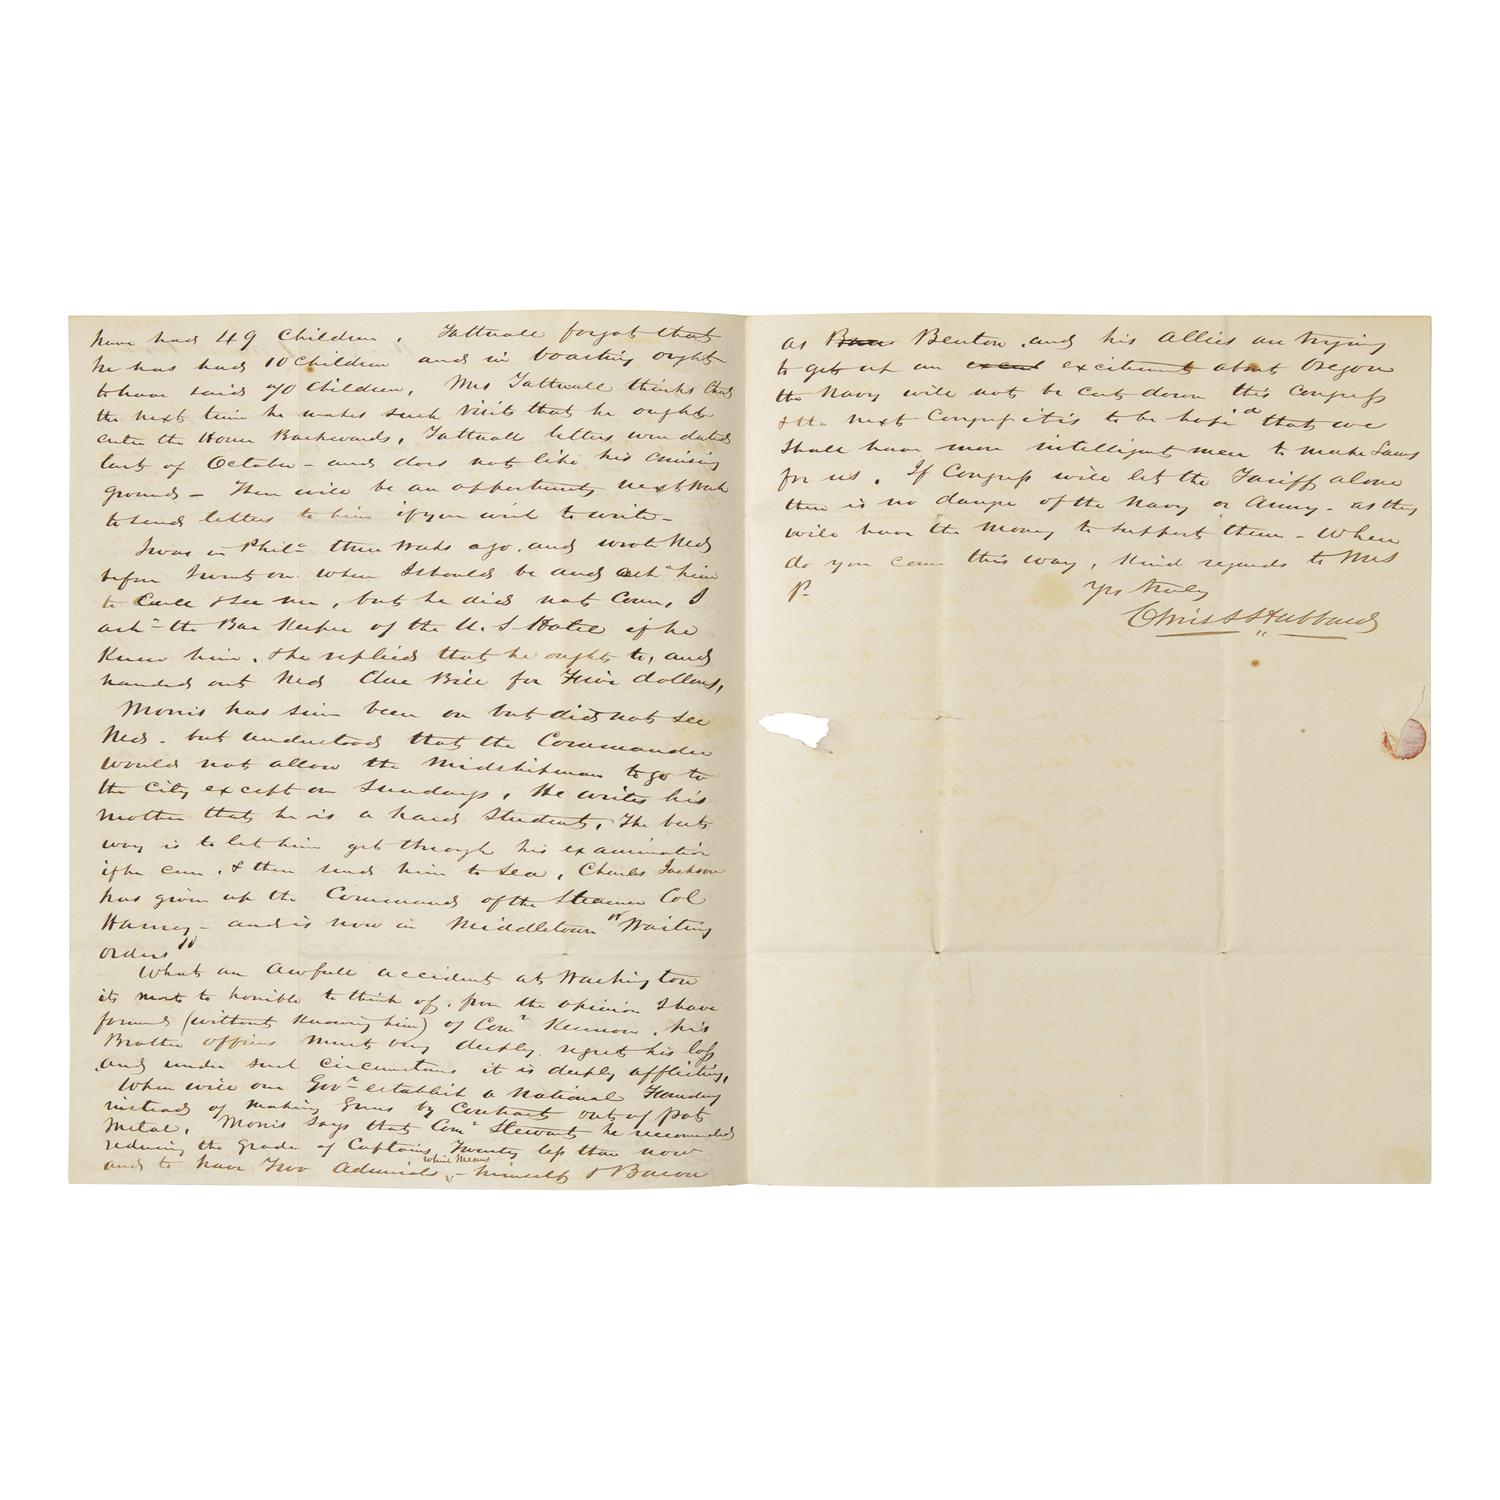 have had 49 Children. Tattnall forgot that
he has had 10 Children and in boasting ought
to have said 70 Children. Mrs Tattnall thinks that
the next time he makes such visits that he ought
enter the House Backwards. Tattnall letters were dated
last of October - and does not like his cruising
grounds - There will be an opportunity next week
to send letters to him if you wish to write -
I was in Phila three weeks ago. and wrote Ned
before I went on when I should be and askd him
to Call & see me, but he did not Come, I
askd the Bar Keeper of the U. S Hotel if he
knew him. & he replied that he ought to, and
handed out Neds Due Bill for Five dollars,
Morris has since been on but did not see
Ned - but understood that the Commander
would not allow the Midshipman to go to
the City except on Sundays, He writes his
mother that he is a hard Student, The best
way is to let him get through his examination
if he can, & then send him to Sea, Charles Jackson
has given up the Command of the Steamer Col
Harney - and is now in Middletown "Waiting
orders"
What an Awfull accident at Washington
its most to horrible to think of. from the opinion I have
formed (without knowing him) of Comr Kennon, his
Brother officers must very deeply regret his loss
and under such circumstans it is deeply afflicting,
When will our Govt establish a National Foundry
instead of making Guns by Contract out of pot
Metal, Morris says that Comr Stewart he recommended
reducing the grade of Captains Twenty less than now
and to have Two Admirals which means - himself & Bacon
as Benton and his Allies are trying
to get up an excitement about Oregon
the Navy will not be cut down this Congress
& the next Congress it is to be hoped that we
Shall have more intelligent men to make Laws
for us. If Congress will let the Tariff alone
there is no danger of the Navy or Army - as they
will have the Money to support them - When
do you come this way, Kind regards to Mrs
P.
Yrs truly
Chris S Hubbard